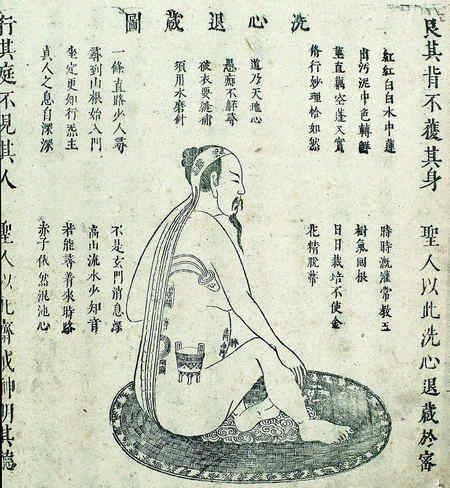 洗心退藏圖
艮其背不獲其身
聖人以此洗心退藏於密
紅紅白白水中蓮
出污泥中色轉鮮
莖直藕空蓬又實
修行妙理恰如然
時時溉灌常教玉
樹氣回根
日日栽培不使金
花精脫蒂
道乃天地心
愚癡不解尋
破衣要線補
須用水磨針
一條直路少人尋
尋到山根始入門
坐定更知行炁主
真人之息自深深
不是玄門消息深
高山流水少知音
若能尋着來時路
赤子依然混沌心
行其庭不見其人
聖人以此齋戒神明其德